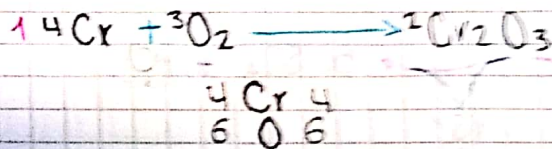 1 4Cr + 3O2 → 2Cr2O3
4 Cr 4
6 O 6